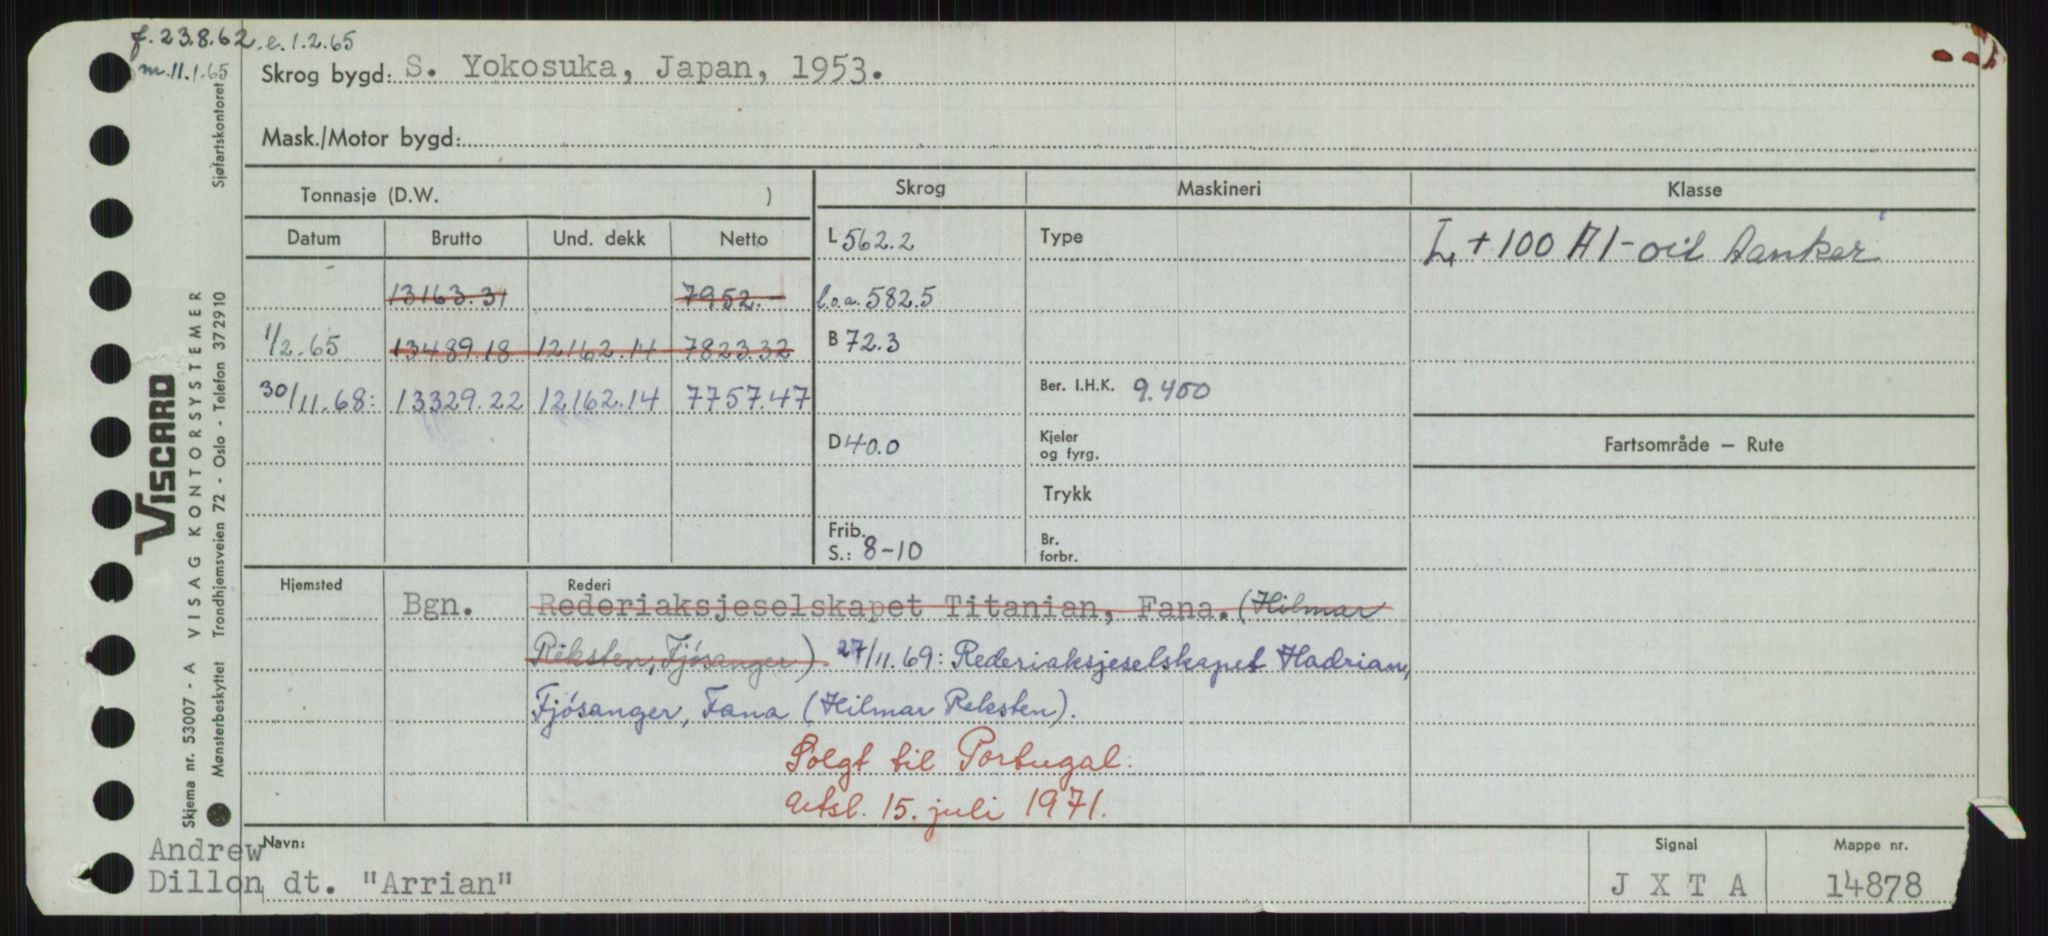 f. 23.8.62. e. 1.2.65
m. 11.1.65
Skrog bygd: S. Yokosuka, Japan, 1953.
Mask./Motor bygd:
Tonnasje (D.W. )
Skrog Maskineri Klasse
Datum Brutto Und. dekk Netto
L 562.2 Type + 100 A1 - oil tanker
13163.31 7952.- l.o.a. 582.5
1/2.65 13489.18 12162.14 7823.32 B 72.3
30/11.68: 13329.22 12162.14 7757.47 Ber. I.H.K. 9.400
D 40.0 Kjeler
og fyrg. Fartsområde — Rute
Trykk
Frib.
S.: 8-10 Br.
forbr.
Hjemsted Rederi
Bgn. Rederiaksjeselskapet Titanian, Fana. (Hilmar
Reksten, Fjösanger) 27/11.69: Rederiaksjeselskapet Hadrian,
Fjösanger, Fana (Hilmar Reksten).
Solgt til Portugal.
Utsl. 15. juli 1971.
Navn: Signal Mappe nr.
Andrew
Dillon dt. "Arrian" J X T A 14878
Sjøfartskontoret
VISCARD
VISAG KONTORSYSTEMER
Trondhjemsveien 72 - Oslo - Telefon 372910
Skjema nr. 53007 - A
Mønsterbeskyttet